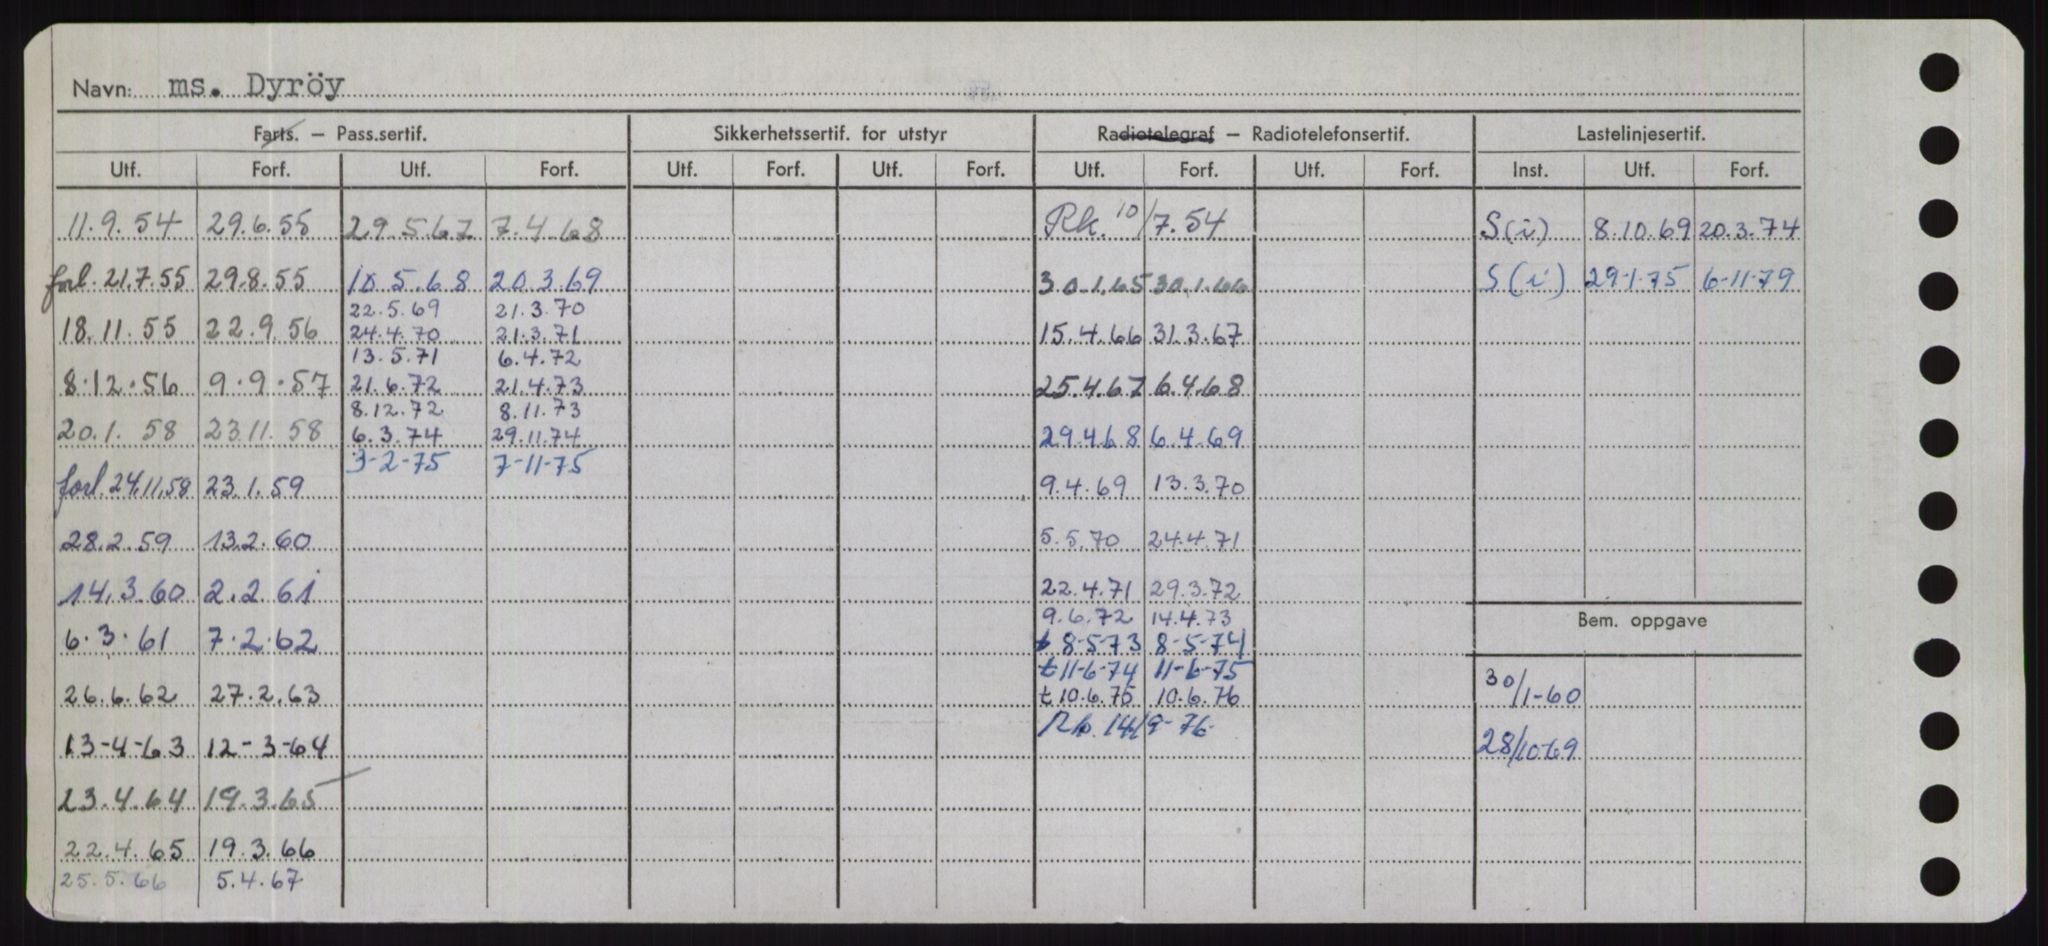 Navn: ms. Dyröy
Farts. — Pass.sertif. Sikkerhetssertif. for utstyr Radiotelegraf — Radiotelefonsertif. Lastelinjesertif.
Utf. Forf. Utf. Forf. Utf. Forf. Utf. Forf. Utf. Forf. Utf. Forf. Inst. Utf. Forf.
11.9.54 29.6.55 29.5.67 7.4.68 Rk. 10/7.54 S(i) 8.10.69 20.3.74
forl. 21.7.55 29.8.55 10.5.68 20.3.69 30.1.65 30.1.66 S(i) 29-1-75 6-11-79
22.5.69 21.3.70
18.11.55 22.9.56 24.4.70 21.3.71 15.4.66 31.3.67
13.5.71 6.4.72
8.12.56 9.9.57 21.6.72 21.4.73 25.4.67 6.4.68
8.12.72 8.11.73
20.1.58 23.11.58 6.3.74 29.11.74 29.4.68 6.4.69
3-2-75 7-11-75
forl. 24.11.58 23.1.59 9.4.69 13.3.70
28.2.59 13.2.60 5.5.70 24.4.71
14.3.60 2.2.61 22.4.71 29.3.72
9.6.72 14.4.73
Bem. oppgave
6.3.61 7.2.62 t 8-5-73 8-5-74
t 11-6-74 11-6-75
26.6.62 27.2.63 t 10.6.75 10.6.76 30/1-60
Rk. 14/9-76
13-4-63 12-3-64 28/10-69
23.4.64 19.3.65
22.4.65 19.3.66
25.5.66 5.4.67